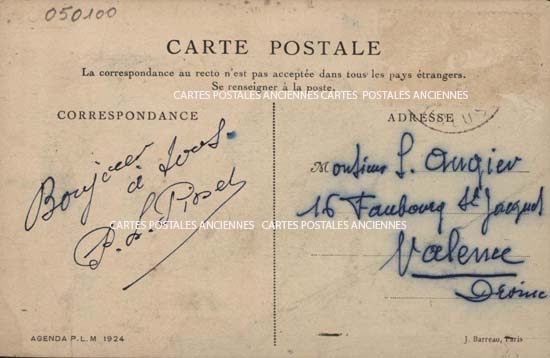 050100
CARTE POSTALE
La correspondance au recto n'est pas acceptée dans tous les pays étrangers.
Se renseigner à la poste.
CARTES POSTALES ANCIENNES CARTES POSTALES ANCIENNES
CORRESPONDANCE
Bonjour
à tous
ADRESSE
Monsieur S. Augier
16 Faubourg St Jacques
Valence
Drôme
CARTES POSTALES ANCIENNES CARTES POSTALES ANCIENNES
AGENDA P.L.M 1924
J. Barreau, Paris